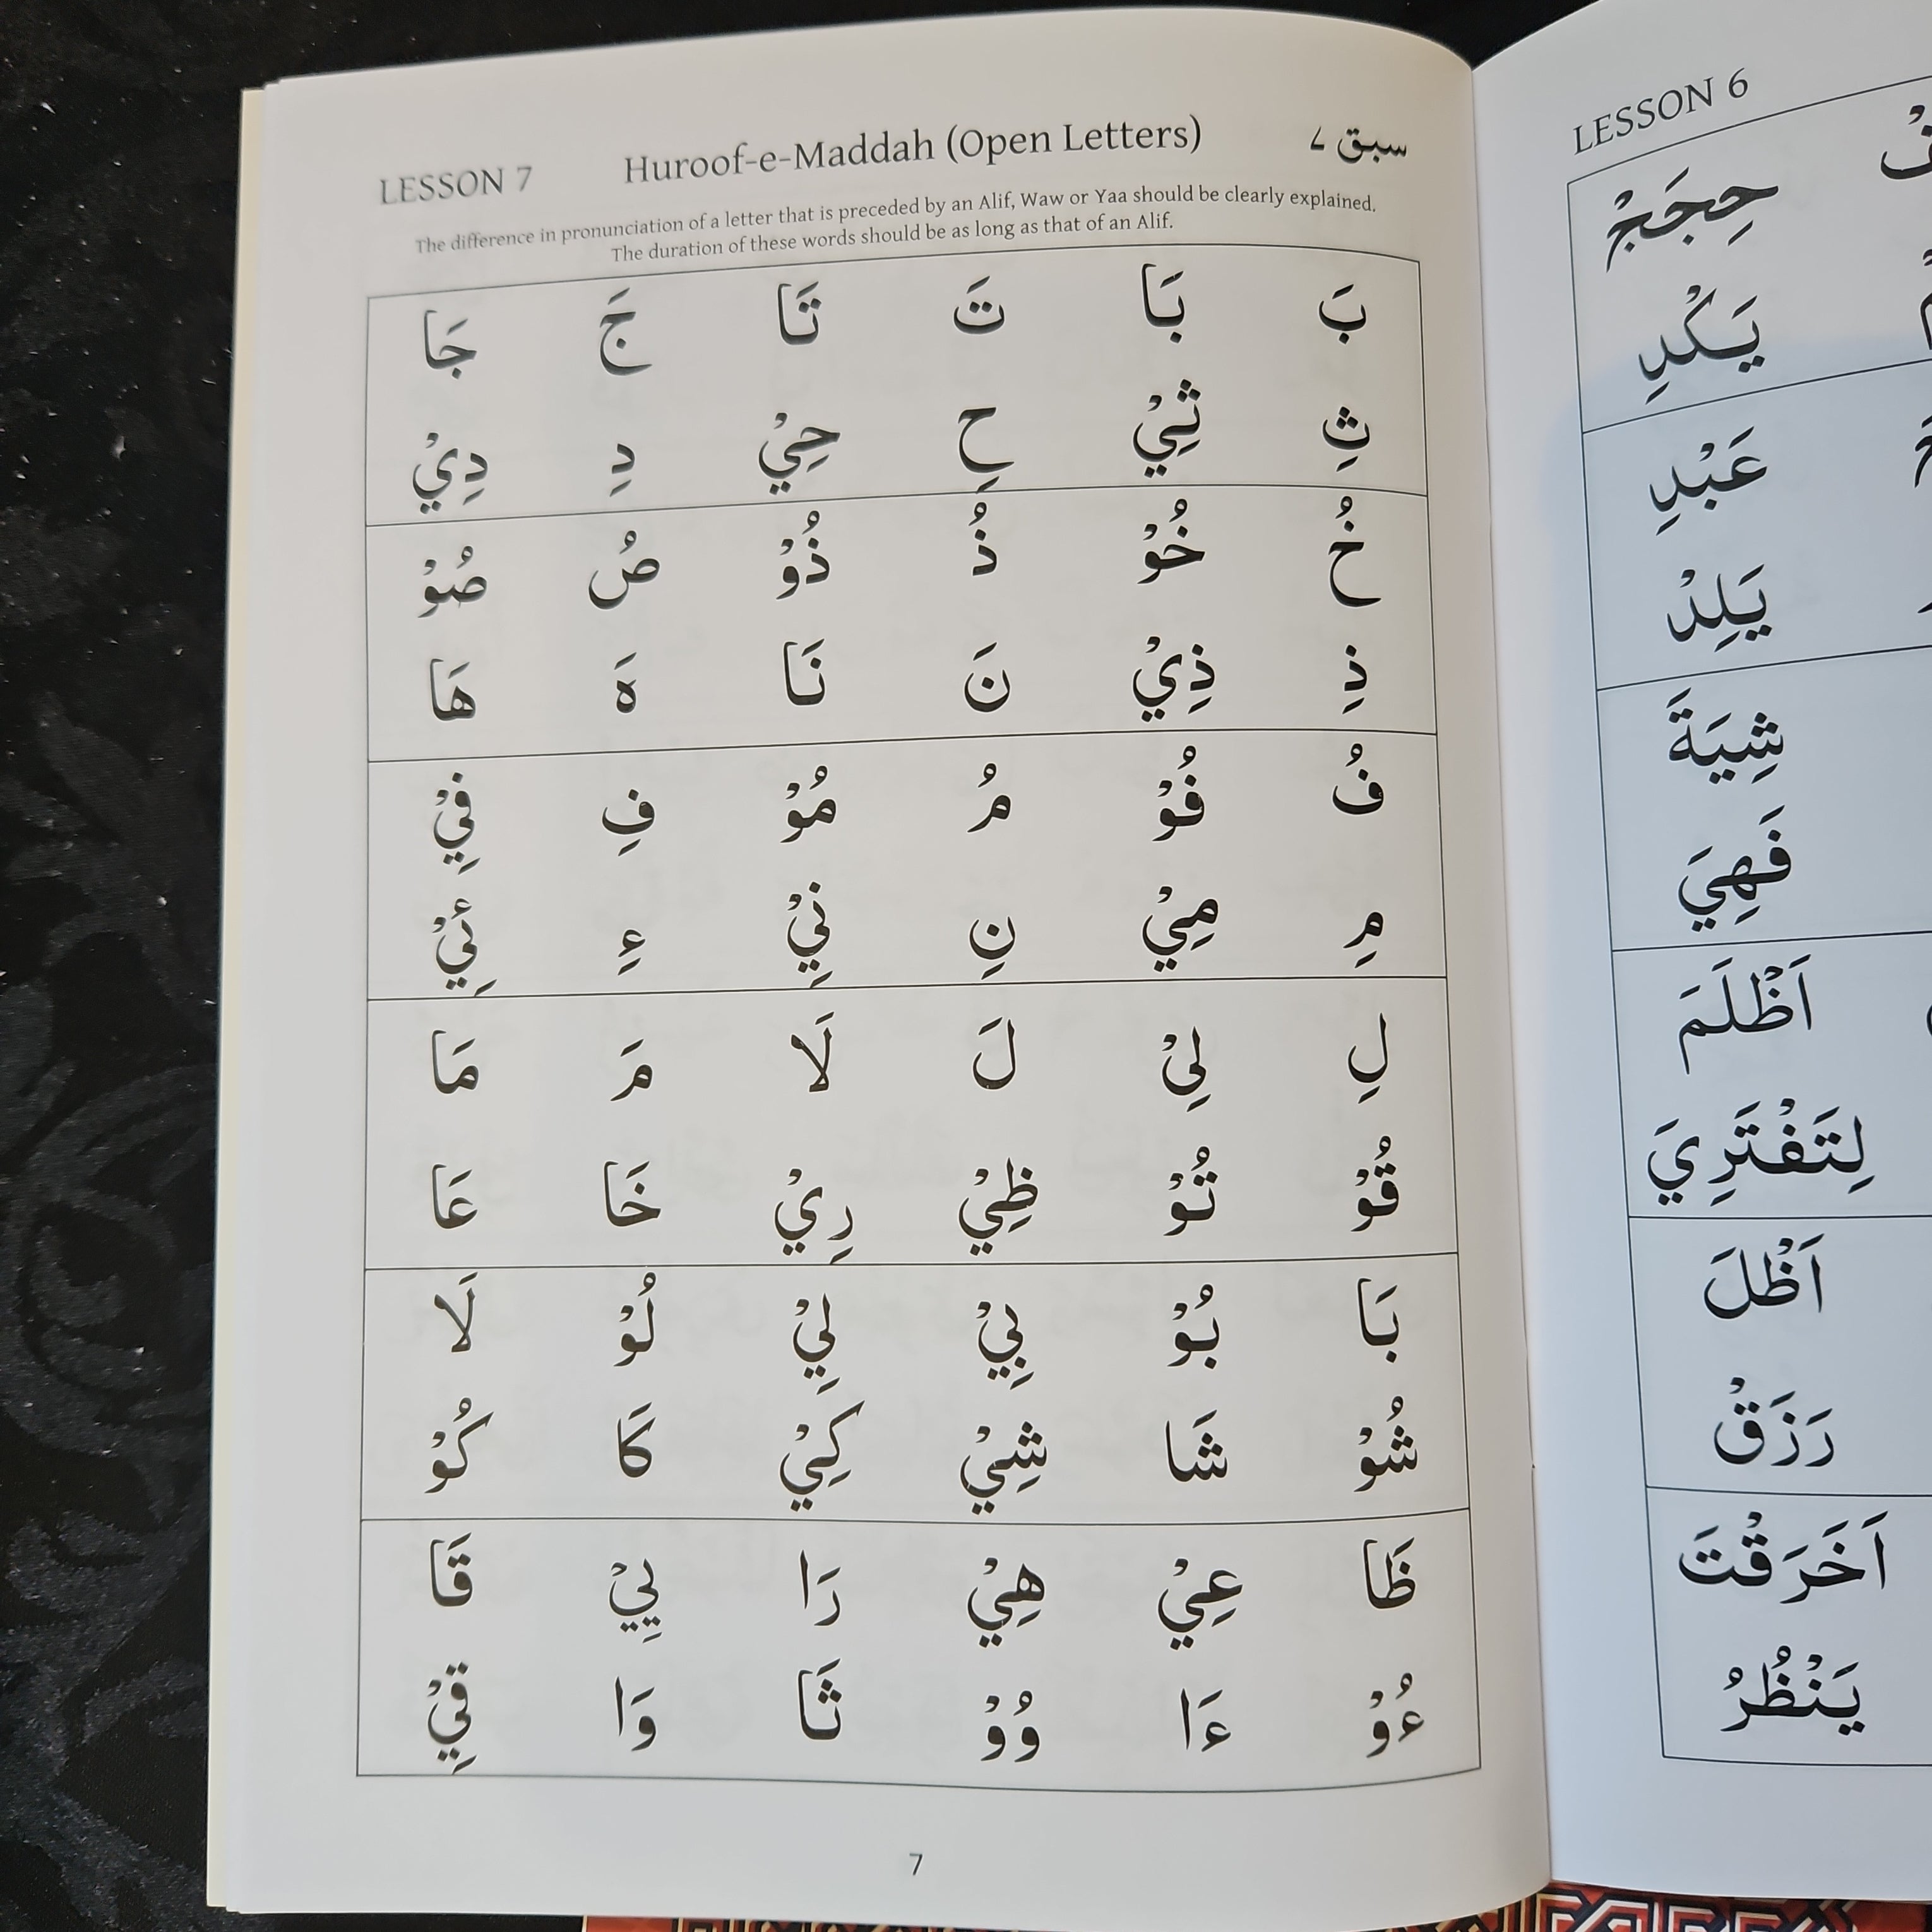 LESSON 7 Huroof-e-Maddah (Open Letters) سبق ۷
The difference in pronunciation of a letter that is preceded by an Alif, Waw or Yaa should be clearly explained.
The duration of these words should be as long as that of an Alif.
بَ بَا تَ تَا جَ جَا
ثِ ثِيْ حِ حِيْ دِ دِيْ
خُ خُوْ ذُ ذُوْ صُ صُوْ
ذِ ذِيْ نَ نَا هَ هَا
فُ فُوْ مُ مُوْ فِ فِيْ
مِ مِيْ نِ نِيْ ءِ ئِيْ
لِ لِىْ لَ لَا مَ مَا
قُوْ تُوْ ظِيْ رِيْ خَا عَا
بَا بُوْ بِيْ لِيْ لُوْ لَا
شُوْ شَا شِيْ كِيْ كَا كُوْ
ظَا عِيْ هِيْ رَا يِيْ قَا
ءُوْ ءَا وُوْ ثَا وَا قِيْ
7
LESSON 6
حِجَجْ
يَكْدِ
عَبْدِ
يَلِدْ
شِيَةَ
فَهِيَ
اَظْلَمَ
لِتَفْتَرِيَ
اَظْلَ
رَزَقْ
اَخَرَقْتَ
يَنْظُرُ